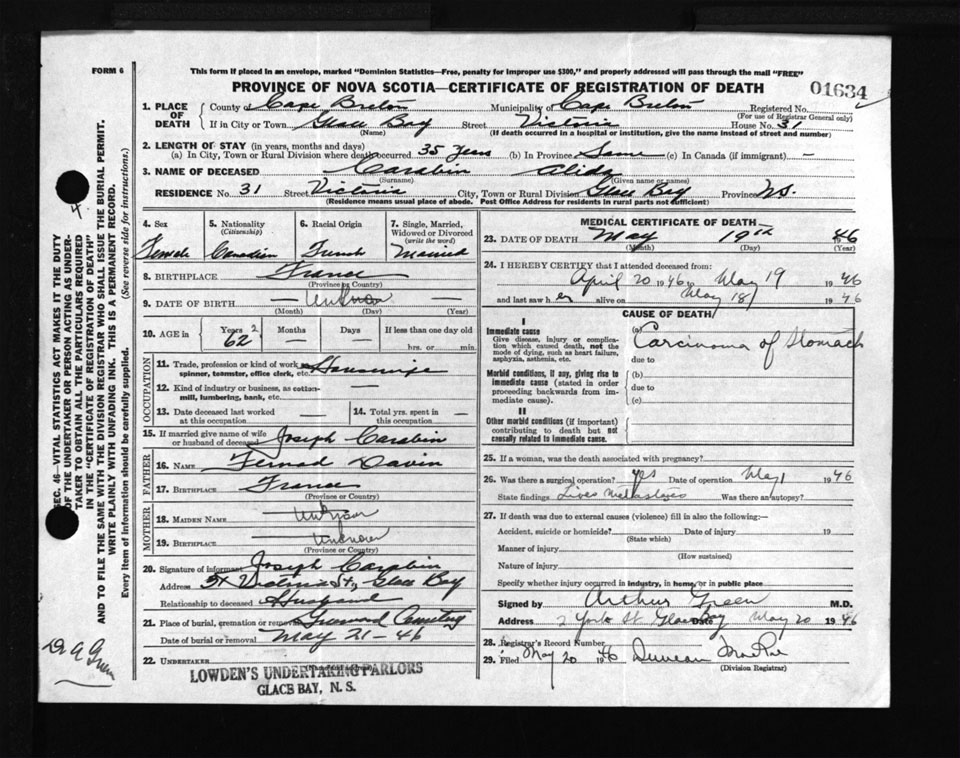 FORM 6
This form if placed in an envelope, marked "Dominion Statistics—Free, penalty for improper use $300," and properly addressed will pass through the mail "FREE"
PROVINCE OF NOVA SCOTIA—CERTIFICATE OF REGISTRATION OF DEATH
01634
1. PLACE OF DEATH
County of Cape Breton Municipality of Cape Breton Registered No.
(For use of Registrar General only)
If in City or Town Glace Bay Street Victoria House No. 31
(Name) (If death occurred in a hospital or institution, give the name instead of street and number)
2. LENGTH OF STAY (in years, months and days)
(a) In City, Town or Rural Division where death occurred 35 Years (b) In Province Same (c) In Canada (if immigrant) —
3. NAME OF DECEASED Carabin
(Surname) (Given name or names)
RESIDENCE No. 31 Street Victoria City, Town or Rural Division Glace Bay Province N.S.
(Residence means usual place of abode. Post Office Address for residents in rural parts not sufficient)
SEC. 46—VITAL STATISTICS ACT MAKES IT THE DUTY
OF THE UNDERTAKER OR PERSON ACTING AS UNDER-
TAKER TO OBTAIN ALL THE PARTICULARS REQUIRED
IN THE "CERTIFICATE OF REGISTRATION OF DEATH"
AND TO FILE THE SAME WITH THE DIVISION REGISTRAR WHO SHALL ISSUE THE BURIAL PERMIT.
WRITE PLAINLY WITH UNFADING INK. THIS IS A PERMANENT RECORD.
Every item of information should be carefully supplied. (See reverse side for instructions.)
4. Sex
Female
5. Nationality
(Citizenship)
Canadian
6. Racial Origin
French
7. Single, Married, Widowed or Divorced
(write the word)
Married
8. BIRTHPLACE France
(Province or Country)
9. DATE OF BIRTH — Unknown —
(Month) (Day) (Year)
10. AGE in Years 62 Months — Days — If less than one day old
hrs. or min.
OCCUPATION
11. Trade, profession or kind of work as spinner, teamster, office clerk, etc. Housewife
12. Kind of industry or business, as cotton-mill, lumbering, bank, etc. —
13. Date deceased last worked at this occupation —
14. Total yrs. spent in this occupation —
15. If married give name of wife or husband of deceased Joseph Carabin
FATHER
16. NAME Davin
17. BIRTHPLACE France
(Province or Country)
MOTHER
18. MAIDEN NAME — Unknown
19. BIRTHPLACE — Unknown
(Province or Country)
20. Signature of informant Joseph Carabin
Address 31 Victoria St, Glace Bay
Relationship to deceased Husband
21. Place of burial, cremation or removal Greenwood Cemetery
Date of burial or removal May 21-46
22. UNDERTAKER
LOWDEN'S UNDERTAKING PARLORS
GLACE BAY, N. S.
MEDICAL CERTIFICATE OF DEATH
23. DATE OF DEATH May 19th 1946
(Month) (Day) (Year)
24. I HEREBY CERTIFY that I attended deceased from:
April 20 1946 to May 19 1946
and last saw her alive on May 18 1946
CAUSE OF DEATH
I
Immediate cause
Give disease, injury or complication which caused death, not the mode of dying, such as heart failure, asphyxia, asthenia, etc.
(a) Carcinoma of Stomach
due to
Morbid conditions, if any, giving rise to immediate cause (stated in order proceeding backwards from immediate cause).
(b)
due to
(c)
II
Other morbid conditions (if important) contributing to death but not causally related to immediate cause.
25. If a woman, was the death associated with pregnancy?
26. Was there a surgical operation? yes Date of operation May 1 1946
State findings Liver Metastases Was there an autopsy?
27. If death was due to external causes (violence) fill in also the following:—
Accident, suicide or homicide? Date of injury 19
(State which)
Manner of injury
(How sustained)
Nature of injury
Specify whether injury occurred in industry, in home, or in public place
Signed by Arthur Green M.D.
Address 2 York St. Glace Bay Date May 20 1946
28. Registrar's Record Number
29. Filed May 20 1946 Duncan MacRae
(Division Registrar)
Dr A Green